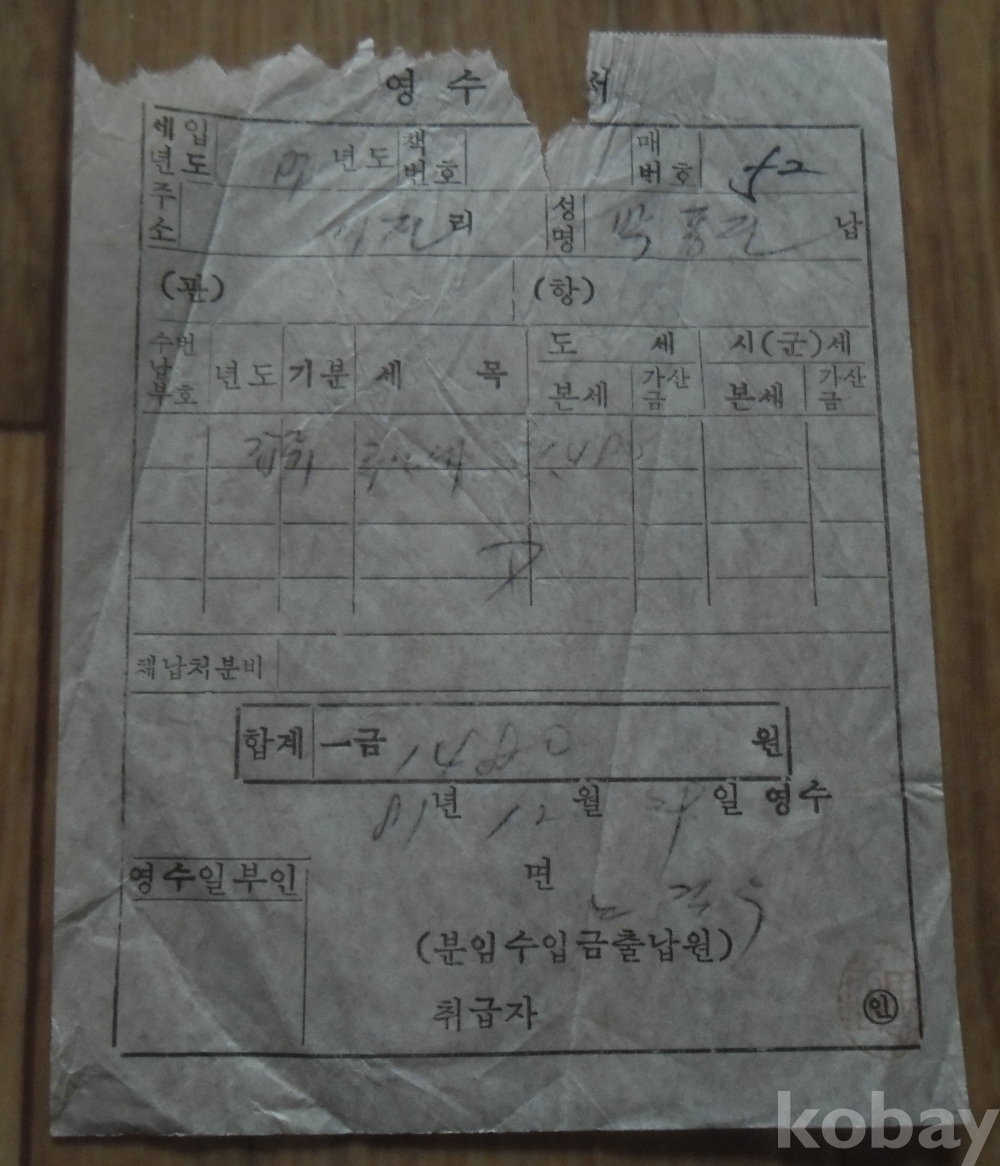 영 수 서
세입년도 년도 책번호 매번호 52
주소 리 성명 박 납
(관) (항)
수납부번호 년도 기분 세 목 도 세 시(군)세
본세 가산금 본세 가산금
체납처분비
합계 一금 1480 원
81년 12월 일 영수
영수일부인 면
(분임수입금출납원)
취급자 인
kobay